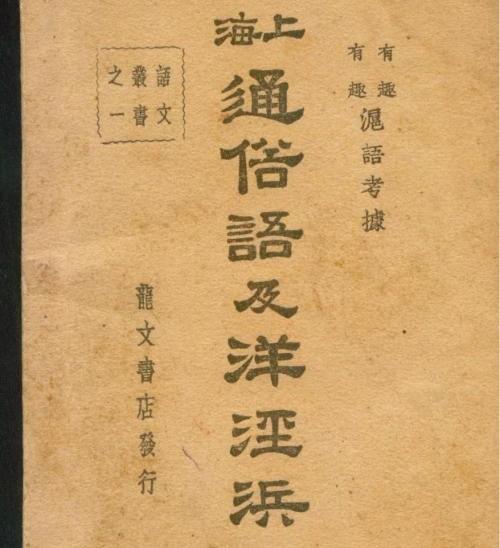 有趣
有趣
滬語考據
上海
通俗語及洋涇浜
語文
叢書
之一
龍文書店發行